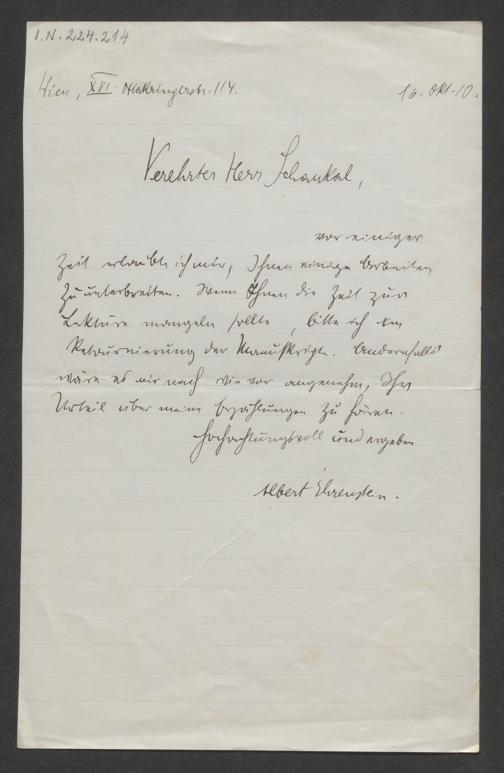 I.N. 224.214
Wien, XVI. Ottakringerstr. 114. 10. Okt. 10.
Verehrter Herr Schaukal,
vor einiger
Zeit erlaubte ich mir, Ihnen einige Arbeiten
zu unterbreiten. Wenn Ihnen die Zeit zur
Lektüre mangeln sollte, bitte ich um
Retournierung der Manuskripte. Andernfalls
wäre es mir nach wie vor angenehm, Ihr
Urteil über meine Erzählungen zu hören.
Hochachtungsvoll und ergeben
Albert Ehrenstein.